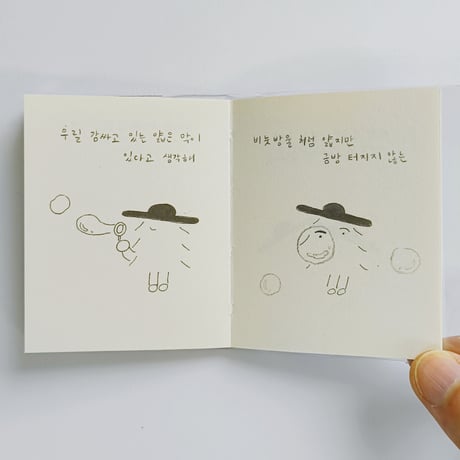 우릴 감싸고 있는 얇은 막이
있다고 생각해
비눗방울 처럼 얇지만
금방 터지지 않는